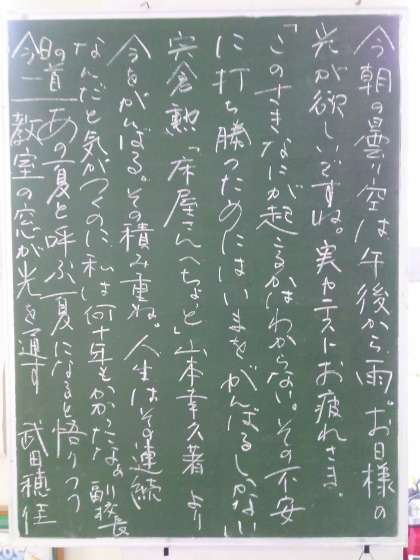 今朝の曇り空は午後から雨。お日様の
光が欲しいですね。実力テストお疲れさま。
「このさきなにが起こるかはわからない。その不安
に打ち勝つためにはいまをがんばるしかない」
宍倉勲「床屋さんへちょっと」山本幸久著より
今をがんばる。その積み重ね。人生はその連続
なんだと気がつくのに私は何十年もかかったなぁ 副校長
今日の一首 あの夏と呼ぶ夏になると悟りつつ
教室の窓が光を通す 武田穂佳